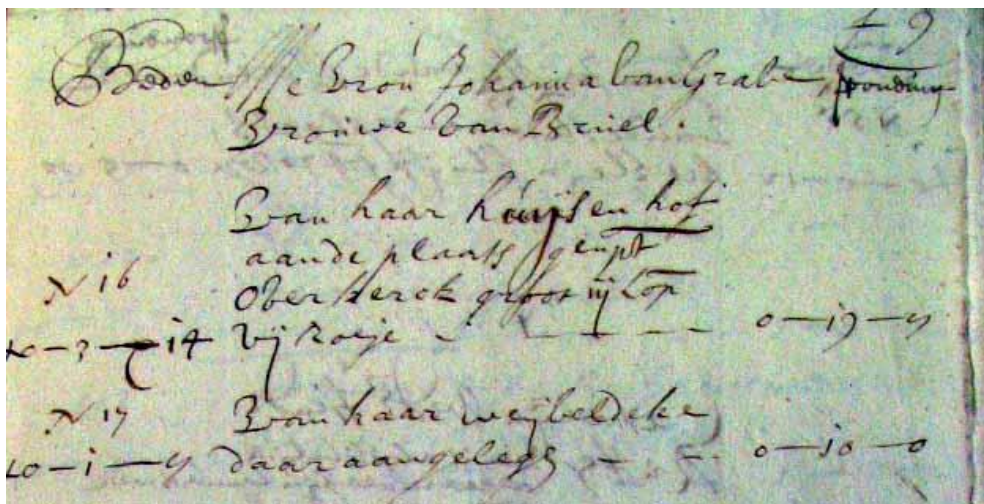 19
Beden Me Vrou Johanna van Grave ponding
Vrouwe van Bruel.
van haar huijs en hof
aande plaats genpt
N 16 Overkerck groot iij Lop
0-3-14 vij roije - - - - 0-19-
N 17 van haar weijveldeke
0-1- daar aangelegen - - 0-10-0